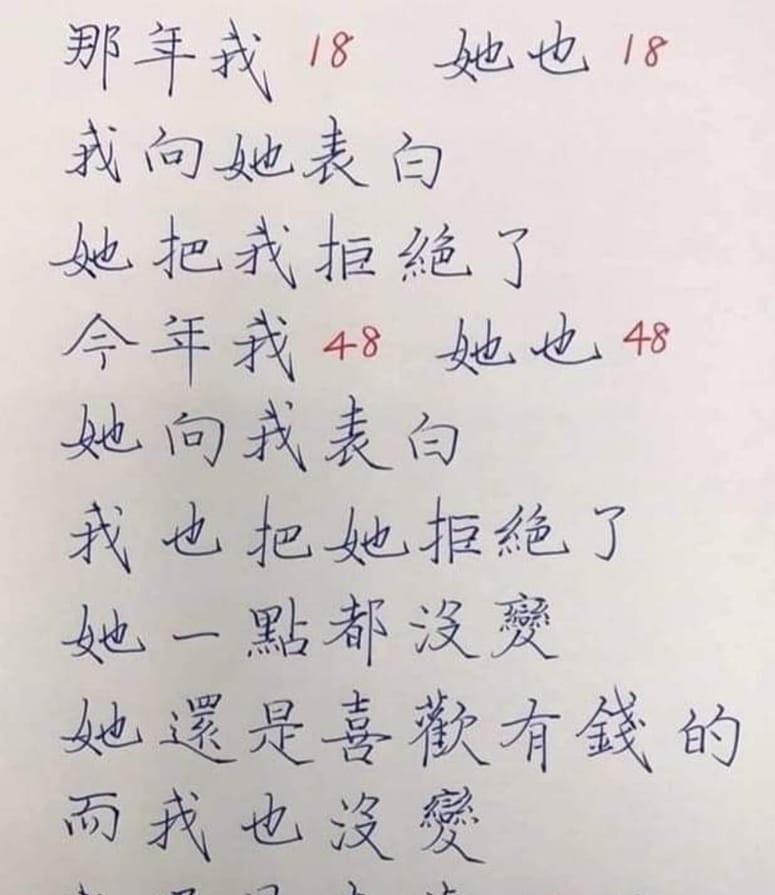 那年我 18 她也 18
我向她表白
她把我拒絕了
今年我 48 她也 48
她向我表白
我也把她拒絕了
她一點都沒變
她還是喜歡有錢的
而我也沒變